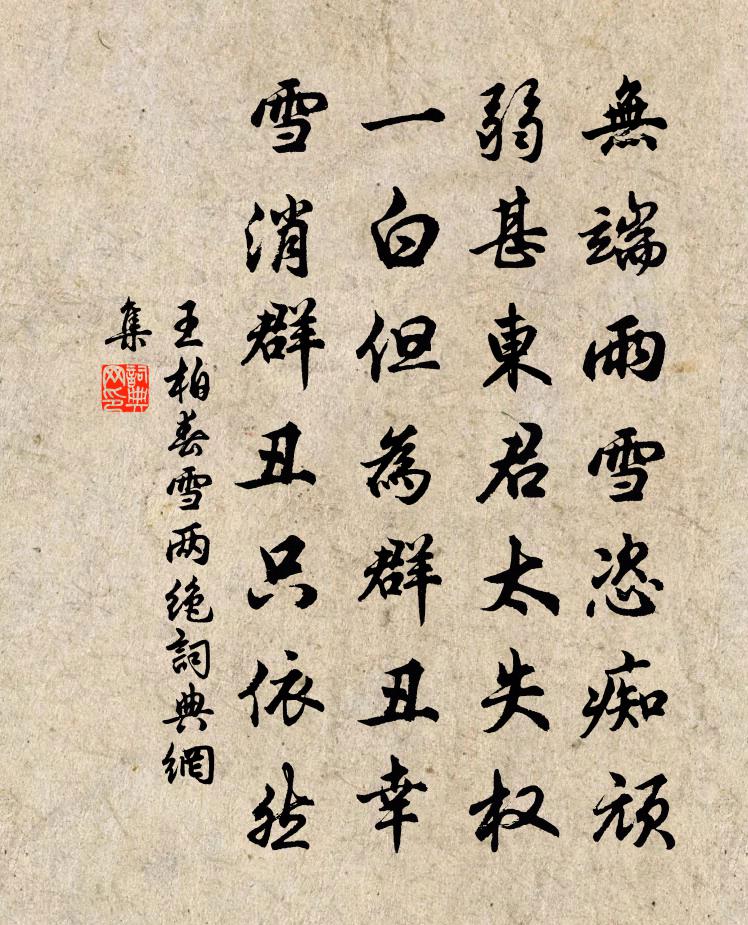 無端雨雪恣痴頑
弱甚東君太失权
一白但為群丑幸
雪消群丑只依然
王柏春雪两绝詞典網
集
詞典
网印